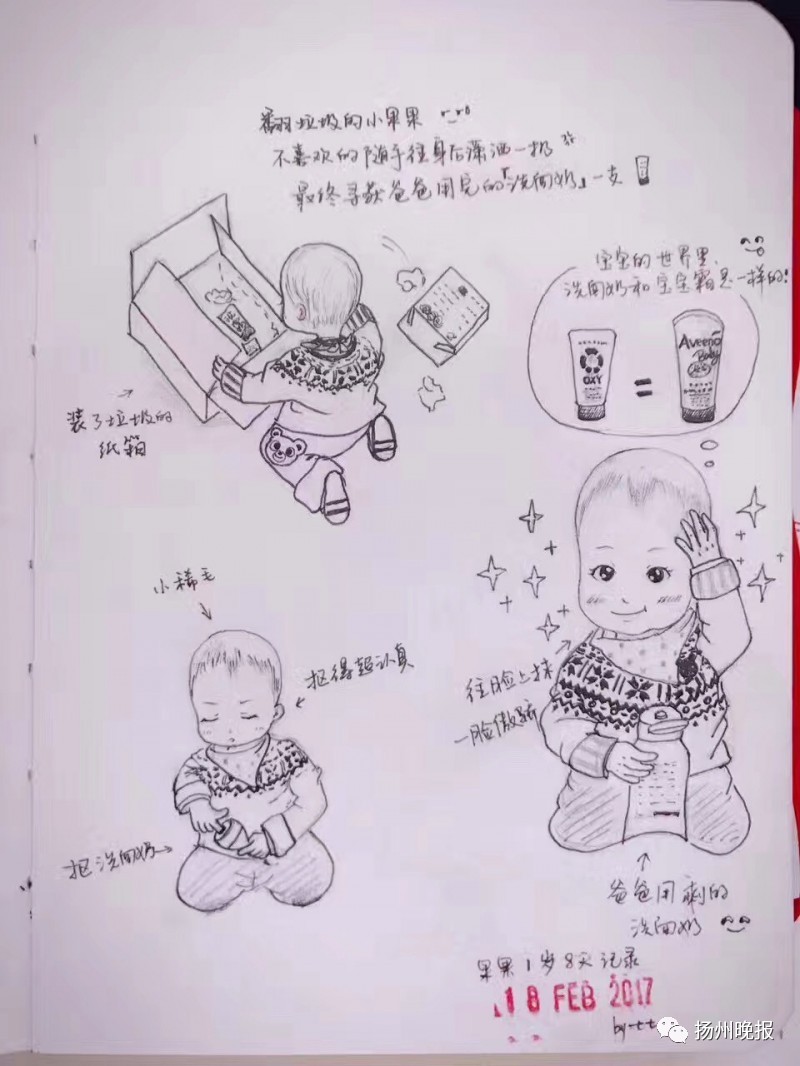 翻垃圾的小果果
不喜欢的随手往身后潇洒一扔
最终寻获爸爸用完的「洗面奶」一支
宝宝的世界里、
洗面奶和宝宝霜是一样的!
OXY
=
Aveeno
Baby
装了垃圾的
纸箱
小稀毛
抠得超认真
抠洗面奶
往脸上抹
一脸傲娇
爸爸用剩的
洗面奶
果果1岁8天记录
18 FEB 2017
by-tt
扬州晚报